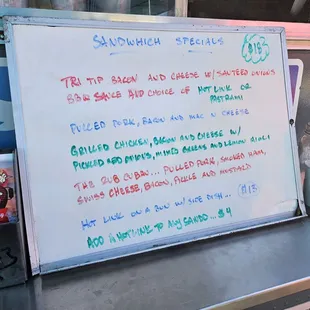 SANDWHICH SPECIALS
$18
TRI TIP BACON AND CHEESE W/ SAUTEED ONIONS
BBQ SAUCE AND CHOICE OF HOT LINK OR
PASTRAMI
PULLED PORK, BACON AND MAC N CHEESE
GRILLED CHICKEN, BACON AND CHEESE W/
PICKLED RED ONIONS, MIXED GREENS AND LEMON AIOLI
THE RUB CUBAN... PULLED PORK, SMOKED HAM,
SWISS CHEESE, BACON, PICKLE AND MUSTARD
HOT LINK ON A BUN W/ SIDE DISH... $13
ADD A HOTLINK TO ANY SANDO... $4